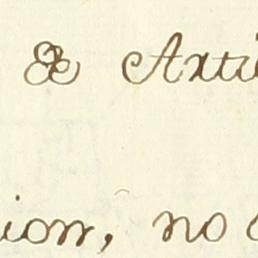 & Arti
ion, no